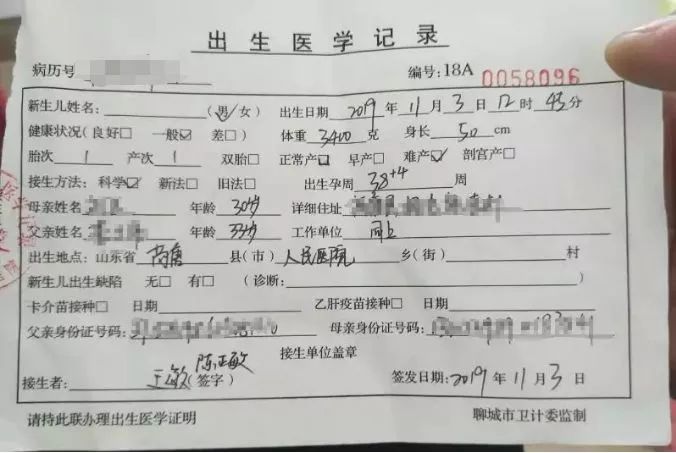 出生医学记录
病历号 编号:18A 0058096
新生儿姓名: (男✓/女) 出生日期 2019 年 11 月 3 日 12 时 45 分
健康状况(良好□ 一般☑ 差□) 体重 3400 克 身长 50 cm
胎次 1 产次 1 双胎□ 正常产☑ 早产□ 难产☑ 剖宫产□
接生方法: 科学☑ 新法□ 旧法□ 出生孕周 38+4 周
母亲姓名 年龄 30岁 详细住址
父亲姓名 年龄 33岁 工作单位 同上
出生地点: 山东省 高唐 县(市) 人民医院 乡(街) 村
新生儿出生缺陷 无□ 有□ (诊断: )
卡介苗接种□ 日期 乙肝疫苗接种□ 日期
父亲身份证号码: 母亲身份证号码:
接生者: 王敏 陈正敏 (签字) 接生单位盖章
签发日期: 2019 年 11 月 3 日
请持此联办理出生医学证明 聊城市卫计委监制